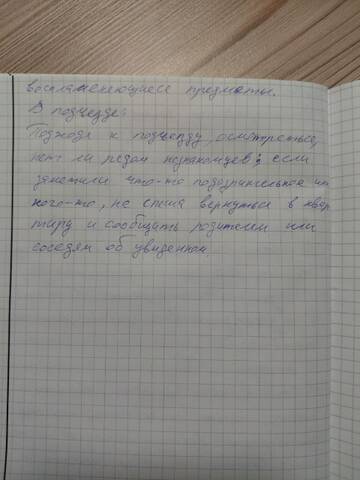 воспламеняющиеся предметы.
В подъезде:
Подходя к подъезду, осмотреться,
нет ли рядом незнакомцев; если
заметили что-то подозрительное или
кого-то, не спеша вернуться в квар
тиру и сообщить родителям или
соседям об увиденном.